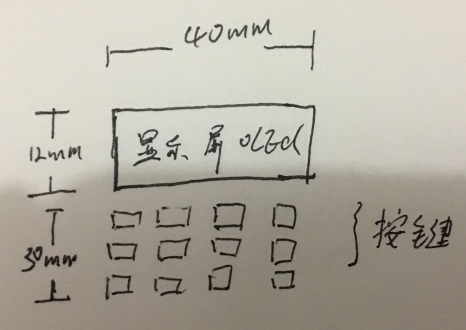 40mm
12mm
显示屏 OLEd
30mm
按键